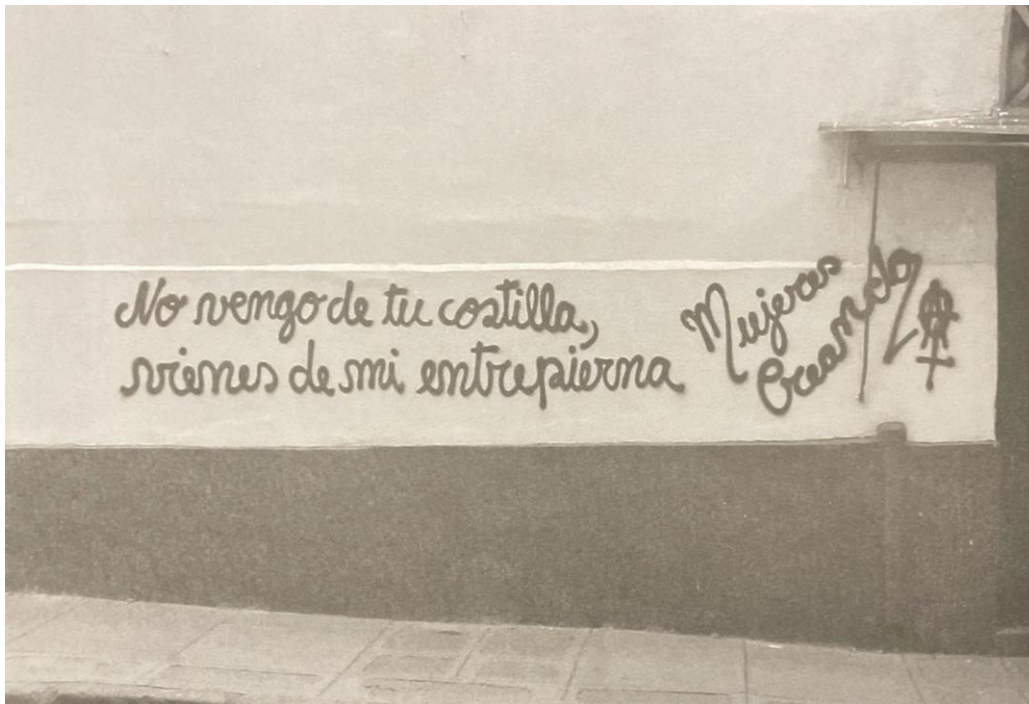 No vengo de tu costilla,
vienes de mi entrepierna
Mujeres
Creando